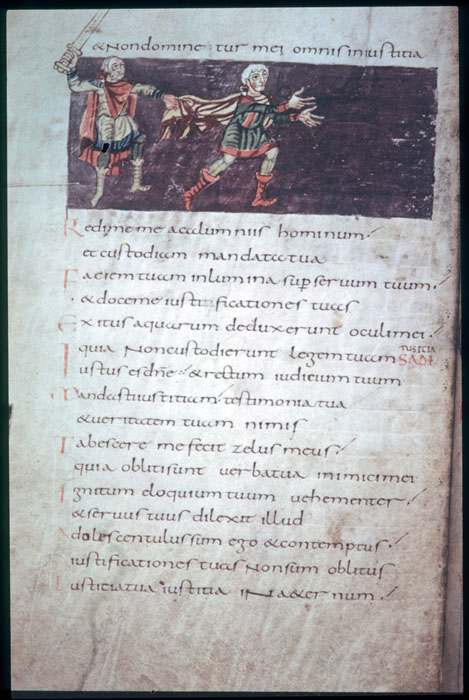 & Non domine tur mei omnis iniustitia
Redime me acalumniis hominum
et custodiam mandata tua
Faciem tuam inlumina sup seruum tuum
& doce me iustificationes tuas
Exitus aquarum deduxerunt oculi mei
quia Non custodierunt legem tuam
Iustus es dne & rectum iudicium tuum
Mandasti iustitiam testimonia tua
& ueritatem tuam nimis
Tabescere me fecit zelus meus
quia obliti sunt uerba tua inimici mei
Ignitum eloquium tuum uehementer
& seruus tuus dilexit illud
Adolescentulus sum ego & contemptus
iustificationes tuas Non sum oblitus
Iustitia tua iustitia iN aeternum